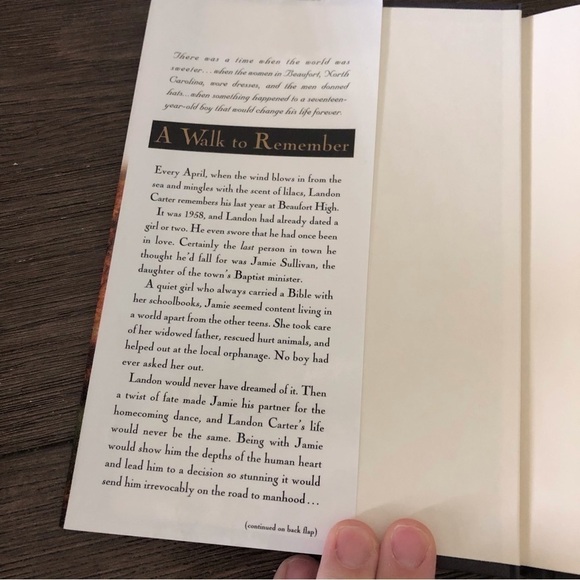 There was a time when the world was
sweeter... when the women in Beaufort, North
Carolina, wore dresses, and the men donned
hats... when something happened to a seventeen-
year-old boy that would change his life forever.
A Walk to Remember
Every April, when the wind blows in from the
sea and mingles with the scent of lilacs, Landon
Carter remembers his last year at Beaufort High.
It was 1958, and Landon had already dated a
girl or two. He even swore that he had once been
in love. Certainly the last person in town he
thought he'd fall for was Jamie Sullivan, the
daughter of the town's Baptist minister.
A quiet girl who always carried a Bible with
her schoolbooks, Jamie seemed content living in
a world apart from the other teens. She took care
of her widowed father, rescued hurt animals, and
helped out at the local orphanage. No boy had
ever asked her out.
Landon would never have dreamed of it. Then
a twist of fate made Jamie his partner for the
homecoming dance, and Landon Carter's life
would never be the same. Being with Jamie
would show him the depths of the human heart
and lead him to a decision so stunning it would
send him irrevocably on the road to manhood...
(continued on back flap)